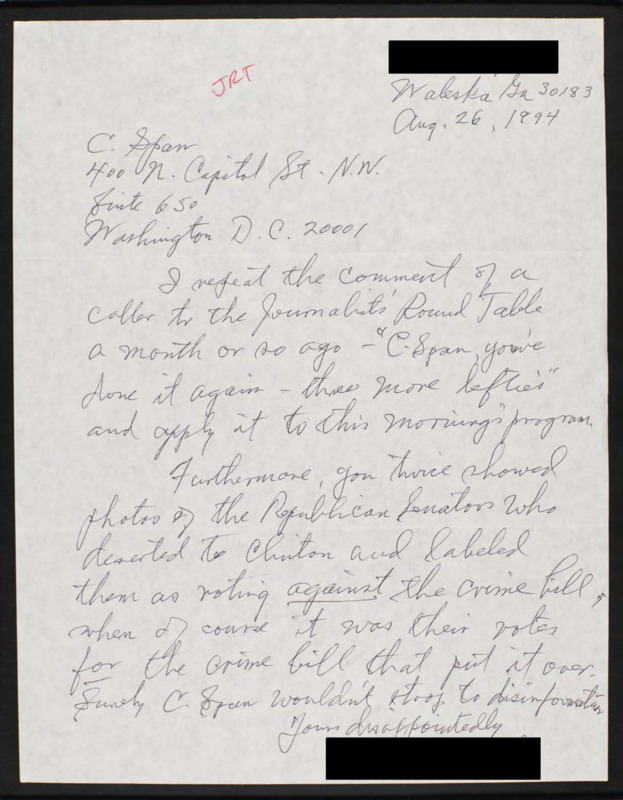 JRT
Waleska Ga 30183
Aug. 26, 1994
C. Span
400 N. Capitol St. N.W.
Suite 650
Washington D.C. 20001
I repeat the comment of a
caller to the Journalists' Round Table
a month or so ago - "C. Span, you've
done it again - three more lefties"
and apply it to this morning's program.
Furthermore, you twice showed
photos of the Republican Senators who
deserted to Clinton and labeled
them as voting against the crime bill,
when of course it was their votes
for the crime bill that put it over.
Surely C. Span wouldn't stoop to disinformation
Yours disappointedly